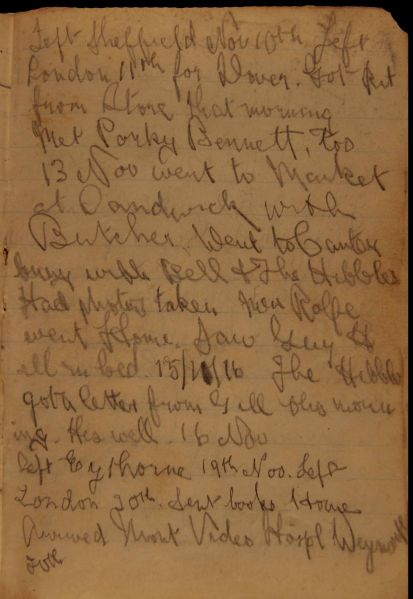 Left Sheffield Nov 10th Left
London 11th for Dover. Got kit
from Store that morning
Met Porky Bennett, too
13 Nov went to Market
at Sandwich with
Butcher. Went to Canter
bury with Bell & The Hibbles
Had photos taken Mrs Rolfe
went Home. Saw Guy H
ill in bed. 15/11/16 The Hibbles
got a letter from Gill this morn
ing. He's well. 16 Nov
left Eythorne 19th Nov. Left
London 20th. Sent books Home
Arrived Mont Video Hospl Weymouth
20th